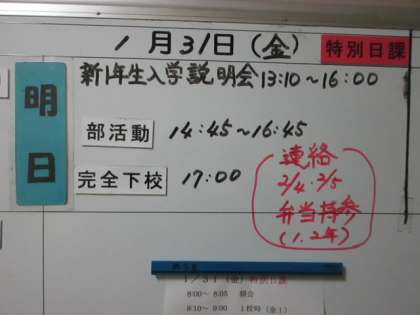 1月31日(金)
特別日課
明日
新1年生入学説明会13:10～16:00
部活動 14:45～16:45
完全下校 17:00
連絡
2/4・2/5
弁当持参
(1.2年)
1/31(金)特別日課
8:00～ 8:05 朝会
8:10～ 9:00 1校時(金1)